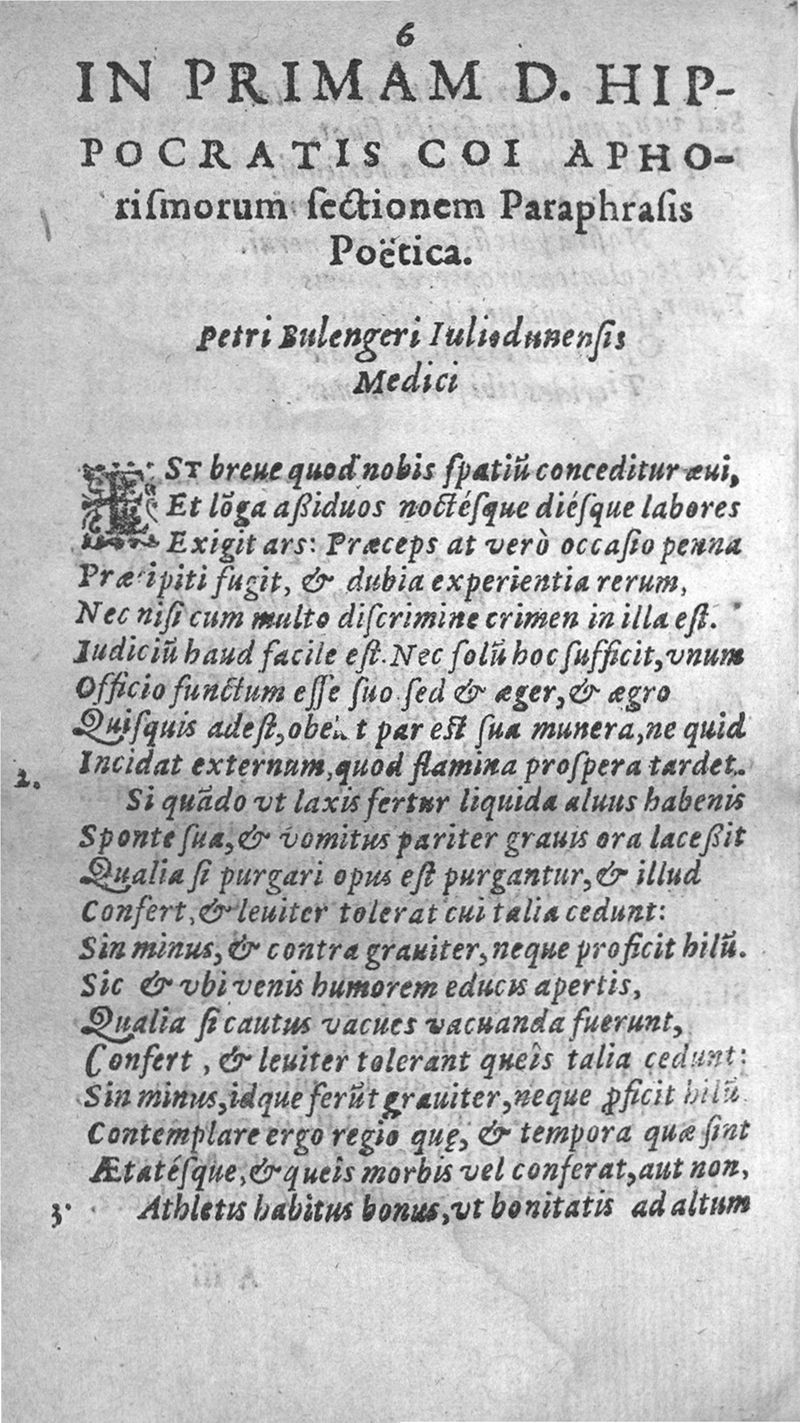 6
IN PRIMAM D. HIP-
POCRATIS COI APHO-
riſmorum ſectionem Paraphraſis
Poëtica.
Petri Bulengeri Iuliodunenſis
Medici
EST breue quod nobis ſpatiũ conceditur æui,
Et lõga aßiduos noctéſque diéſque labores
Exigit ars: Præceps at verò occaſio penna
Præcipiti fugit, & dubia experientia rerum,
Nec niſi cum multo diſcrimine crimen in illa eſt.
Iudiciũ haud facile eſt. Nec ſolũ hoc ſufficit, vnum
Officio functum eſſe ſuo ſed & æger, & ægro
Quiſquis adeſt, par eſt ſua munera, ne quid
Incidat externum, quod flamina proſpera tardet.
2.
Si quãdo vt laxis fertur liquida aluus habenis
Sponte ſua, & vomitus pariter grauis ora laceßit
Qualia ſi purgari opus eſt purgantur, & illud
Confert, & leuiter tolerat cui talia cedunt:
Sin minus, & contra grauiter, neque proficit hilũ.
Sic & vbi venis humorem educis apertis,
Qualia ſi cautus vacues vacuanda fuerunt,
Confert, & leuiter tolerant queîs talia cedunt:
Sin minus, idque ferũt grauiter, neque ꝓficit hilũ
Contemplare ergo regio quę, & tempora quæ ſint
Ætatéſque, & queîs morbis vel conferat, aut non,
3. Athletis habitus bonus, vt bonitatis ad altum